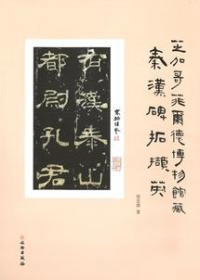 芝加哥菲爾德博物館藏
秦漢碑拓擷英
有漢泰山
都尉孔君
文物出版社